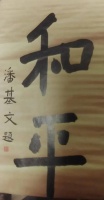 和平
潘基文题